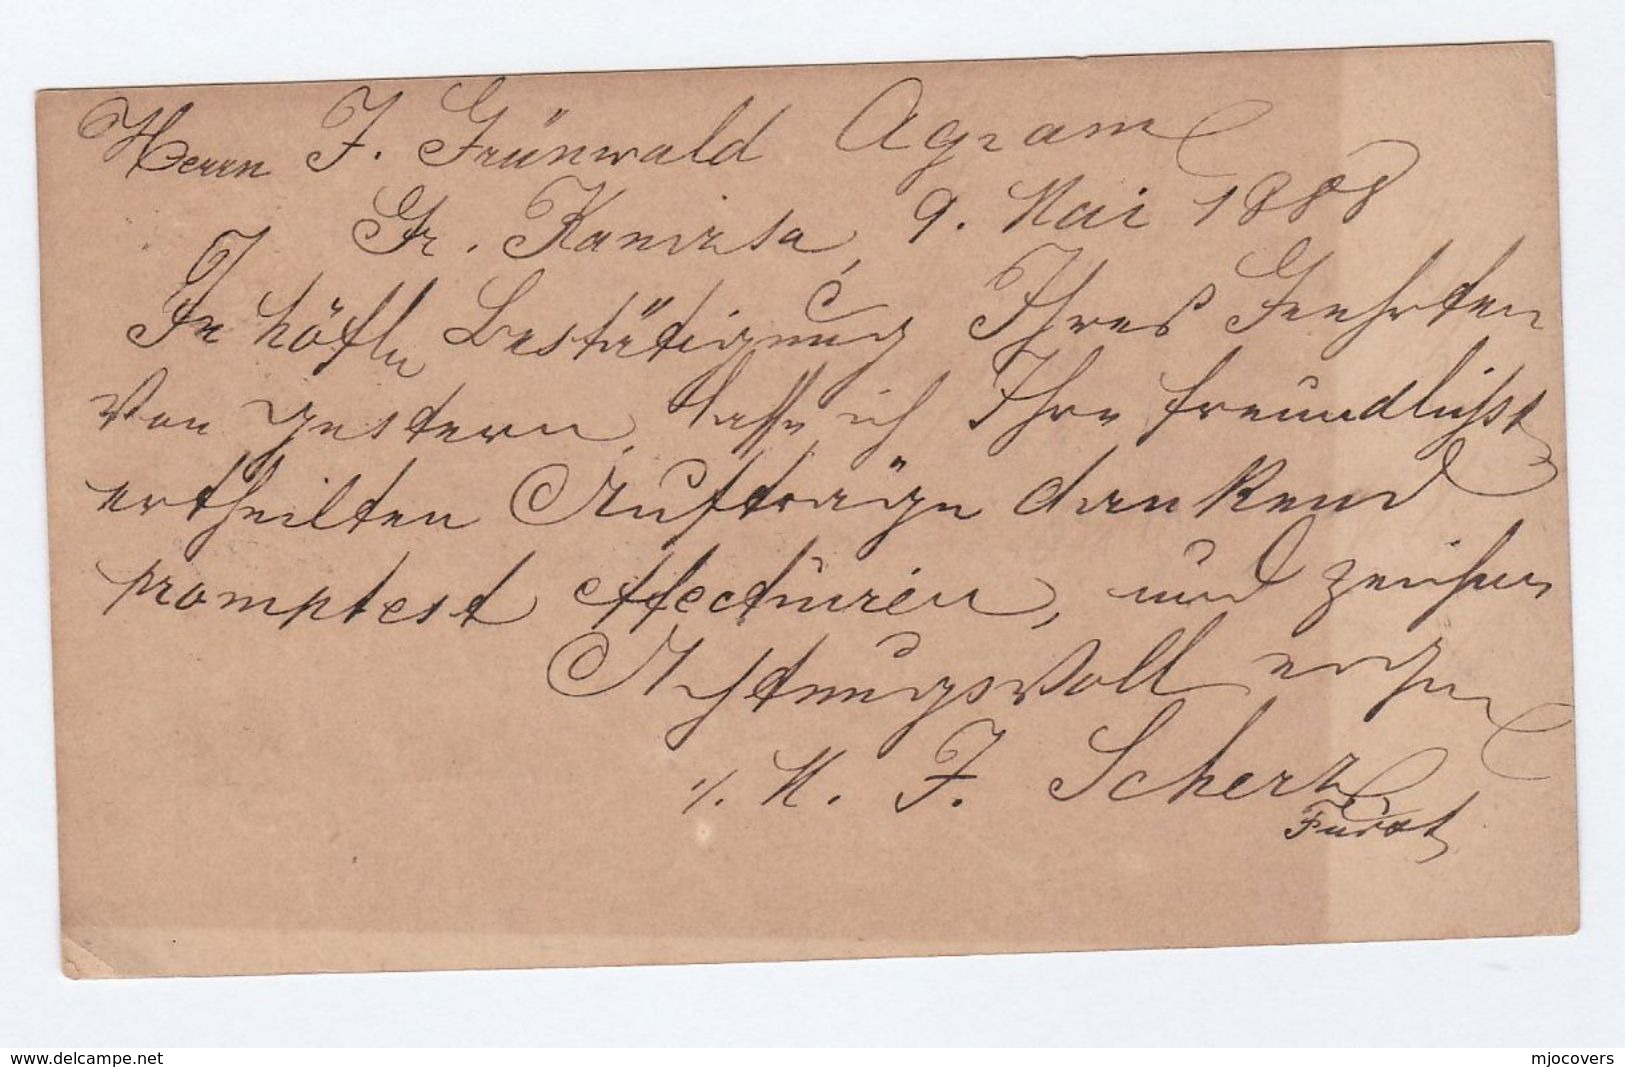 Herrn J. Grünwald Agram
Gr. Kanizsa, 9. Mai 1888
In höfl. Bestätigung Ihres Geehrten
von gestern, lasse ich Ihre freundlichst
ertheilten Aufträge dankend
promptest effectuiren, und zeichne
Achtungsvoll ergen
J. Scherz
Fürst
www.delcampe.net
mjocovers